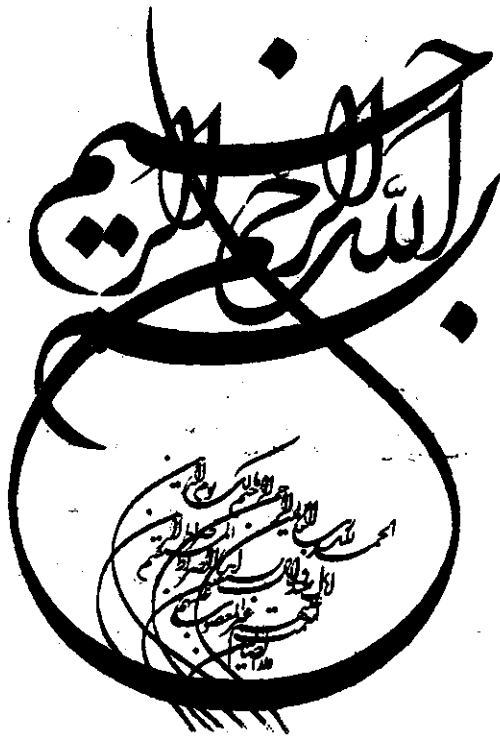 بسم الله الرحمن الرحیم
الحمد لله رب العالمین
الرحمن الرحیم
مالک یوم الدین
ایاک نعبد و ایاک نستعین
اهدنا الصراط المستقیم
صراط الذین
انعمت علیهم
غیر المغضوب علیهم
و لا الضالین